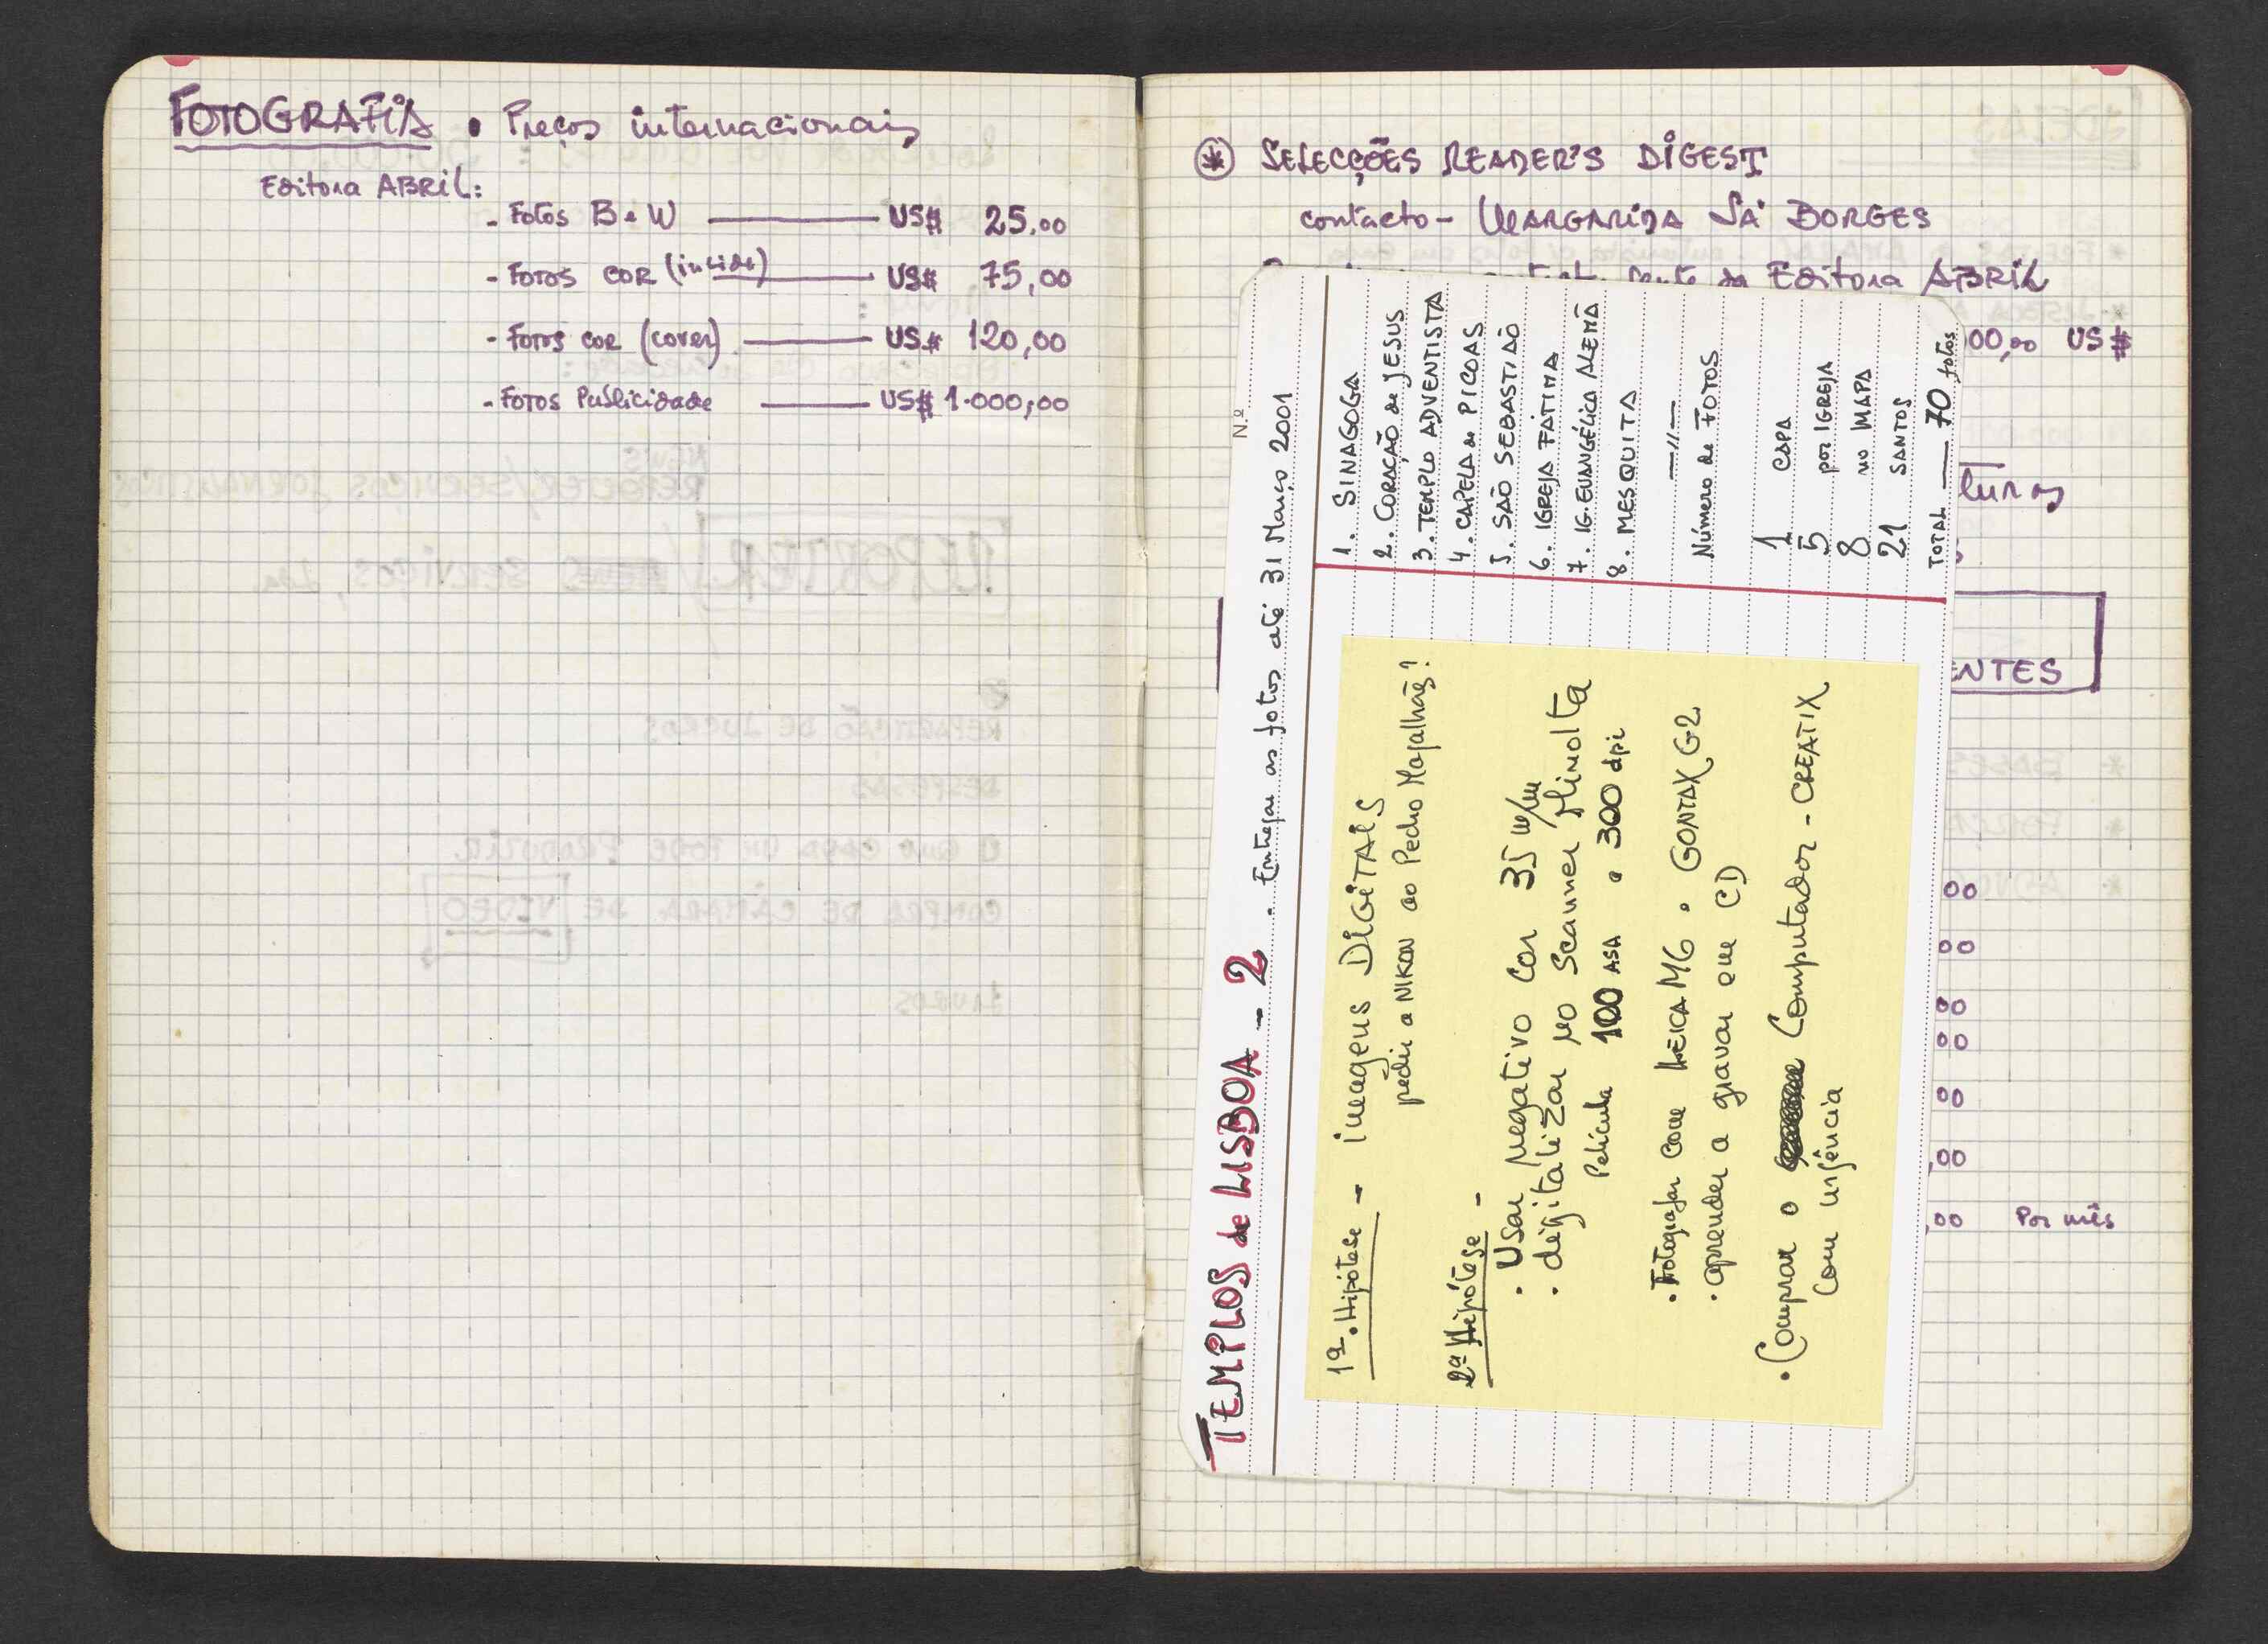 FOTOGRAFIA • Preços internacionais
Editora ABRIL:
- Fotos B e W — US$ 25,00
- Fotos COR (inside) — US$ 75,00
- Fotos COR (cover) — US$ 120,00
- Fotos Publicidade — US$ 1.000,00
* SELECÇÕES READER'S DIGEST
contacto - MARGARIDA SÁ BORGES
da Editora ABRIL
00,00 US$
ENTES
00
00
00
00
00
,00
,00 Por mês
TEMPLOS de LISBOA - 2 . Entregar as fotos até 31 Março 2001
N.º
1. SINAGOGA
2. CORAÇÃO de JESUS
3. TEMPLO ADVENTISTA
4. CAPELA de PICOAS
5. SÃO SEBASTIÃO
6. IGREJA FÁTIMA
7. IG. EVANGÉLICA ALEMÃ
8. MESQUITA
—"—
Número de FOTOS
1 CAPA
5 por IGREJA
8 no MAPA
21 SANTOS
TOTAL — 70 fotos
1ª. Hipótese - imagens DIGITAIS
pedir a NIKON ao Pedro Magalhães?
2ª Hipótese -
. Usar negativo cor 35 m/m
. digitalizar no Scanner Minolta
Película 100 ASA • 300 dpi
. Fotografar com LEICA M6 • CONTAX G2
. aprender a gravar em CD
. Comprar o Computador - CREATIX
com urgência